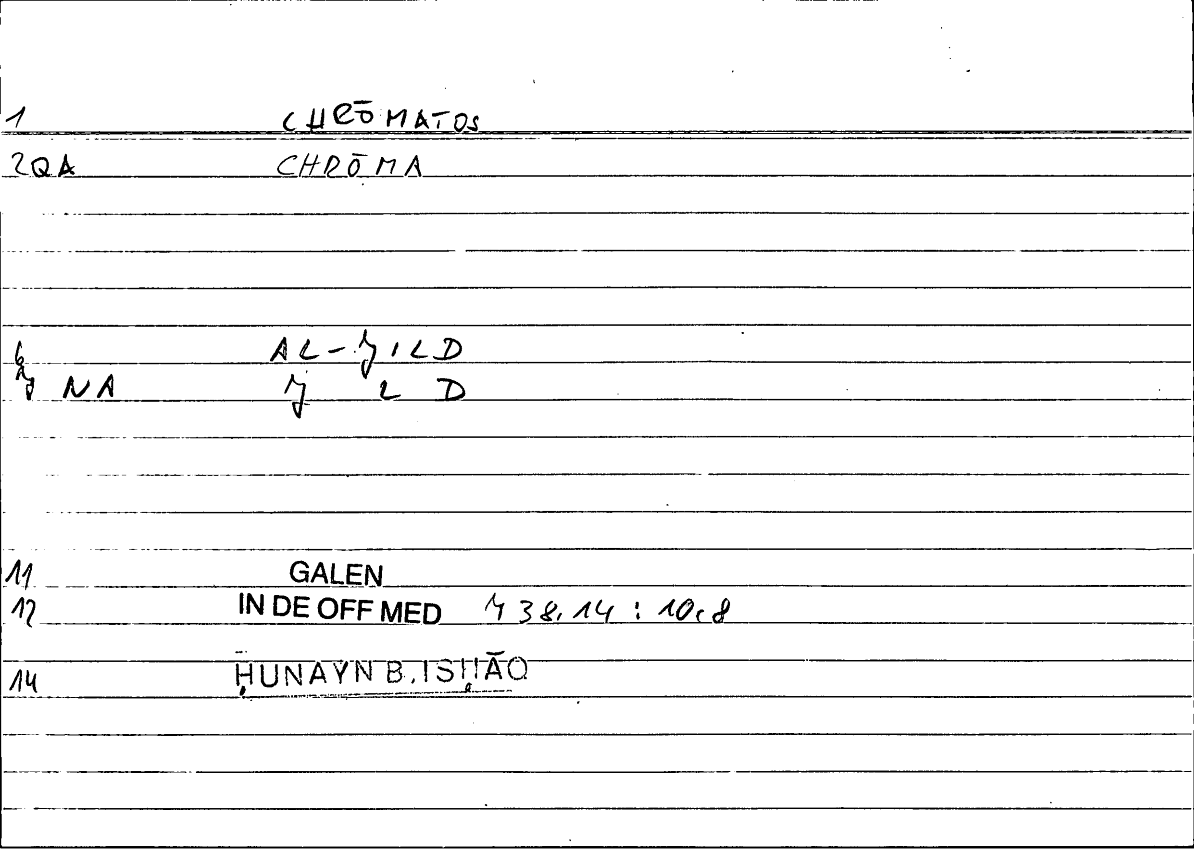 1 CHRŌMATOS
2QA CHRŌMA
6 AL-ǦILD
NA Ǧ L D
11 GALEN
12 IN DE OFF MED 738,14 : 10,8
14 ḤUNAYN B. ISḤĀQ